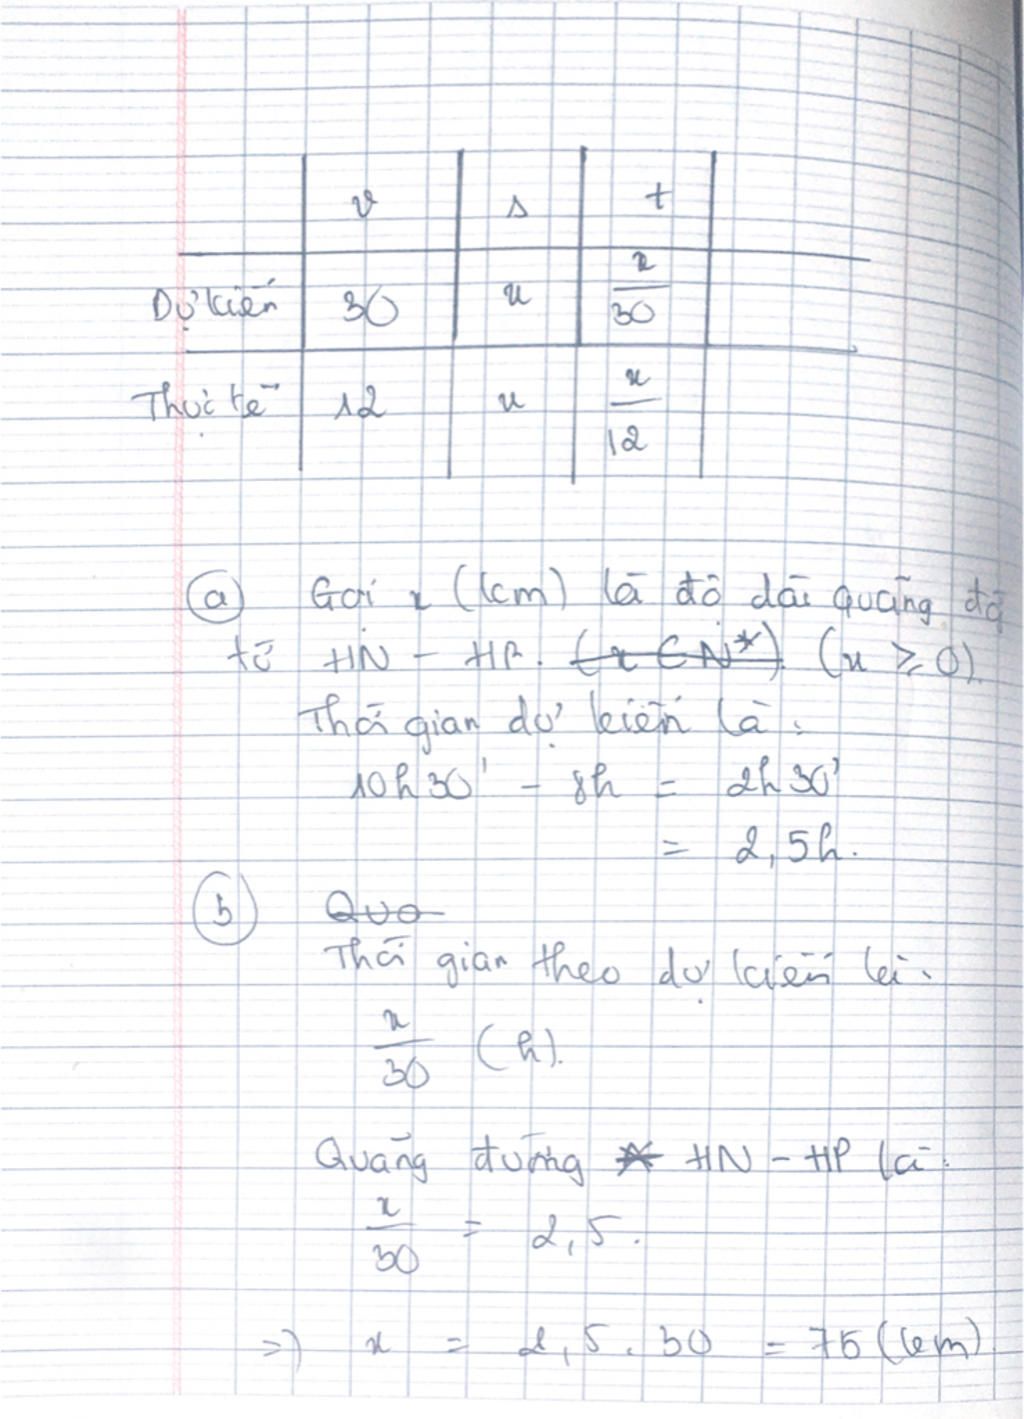 v s t
Dự kiến 30 x x/30
Thực tế 12 x x/12
a Gọi x (km) là độ dài quãng đg
từ HN - HP. (x ∈ N*) (x ≥ 0)
Thời gian dự kiến là:
10h30' - 8h = 2h30'
= 2,5h.
b Quo
Thời gian theo dự kiến là:
x/30 (h).
Quãng đường HN - HP là:
x/30 = 2,5.
=> x = 2,5 . 30 = 75 (km)